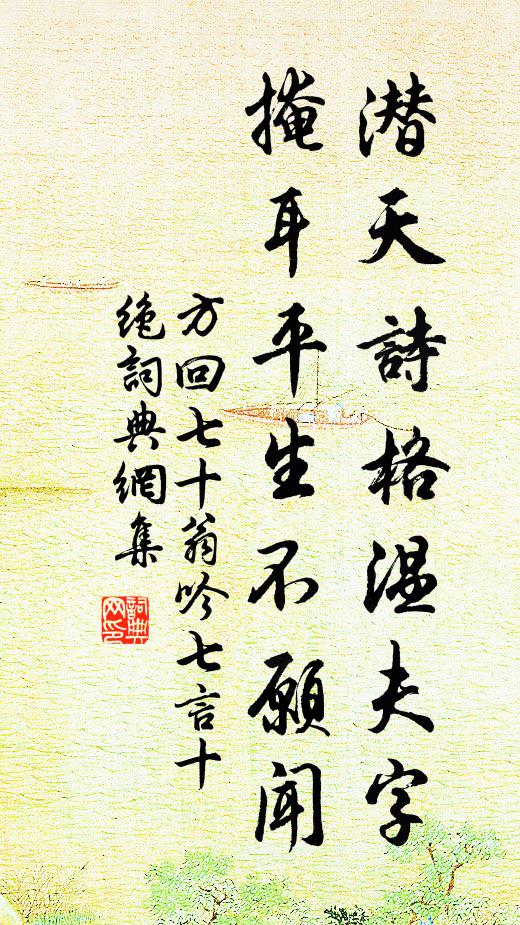 潜天詩格温夫字
掩耳平生不願聞
方回七十翁吟七言十
絶詞典網集
詞典
网印